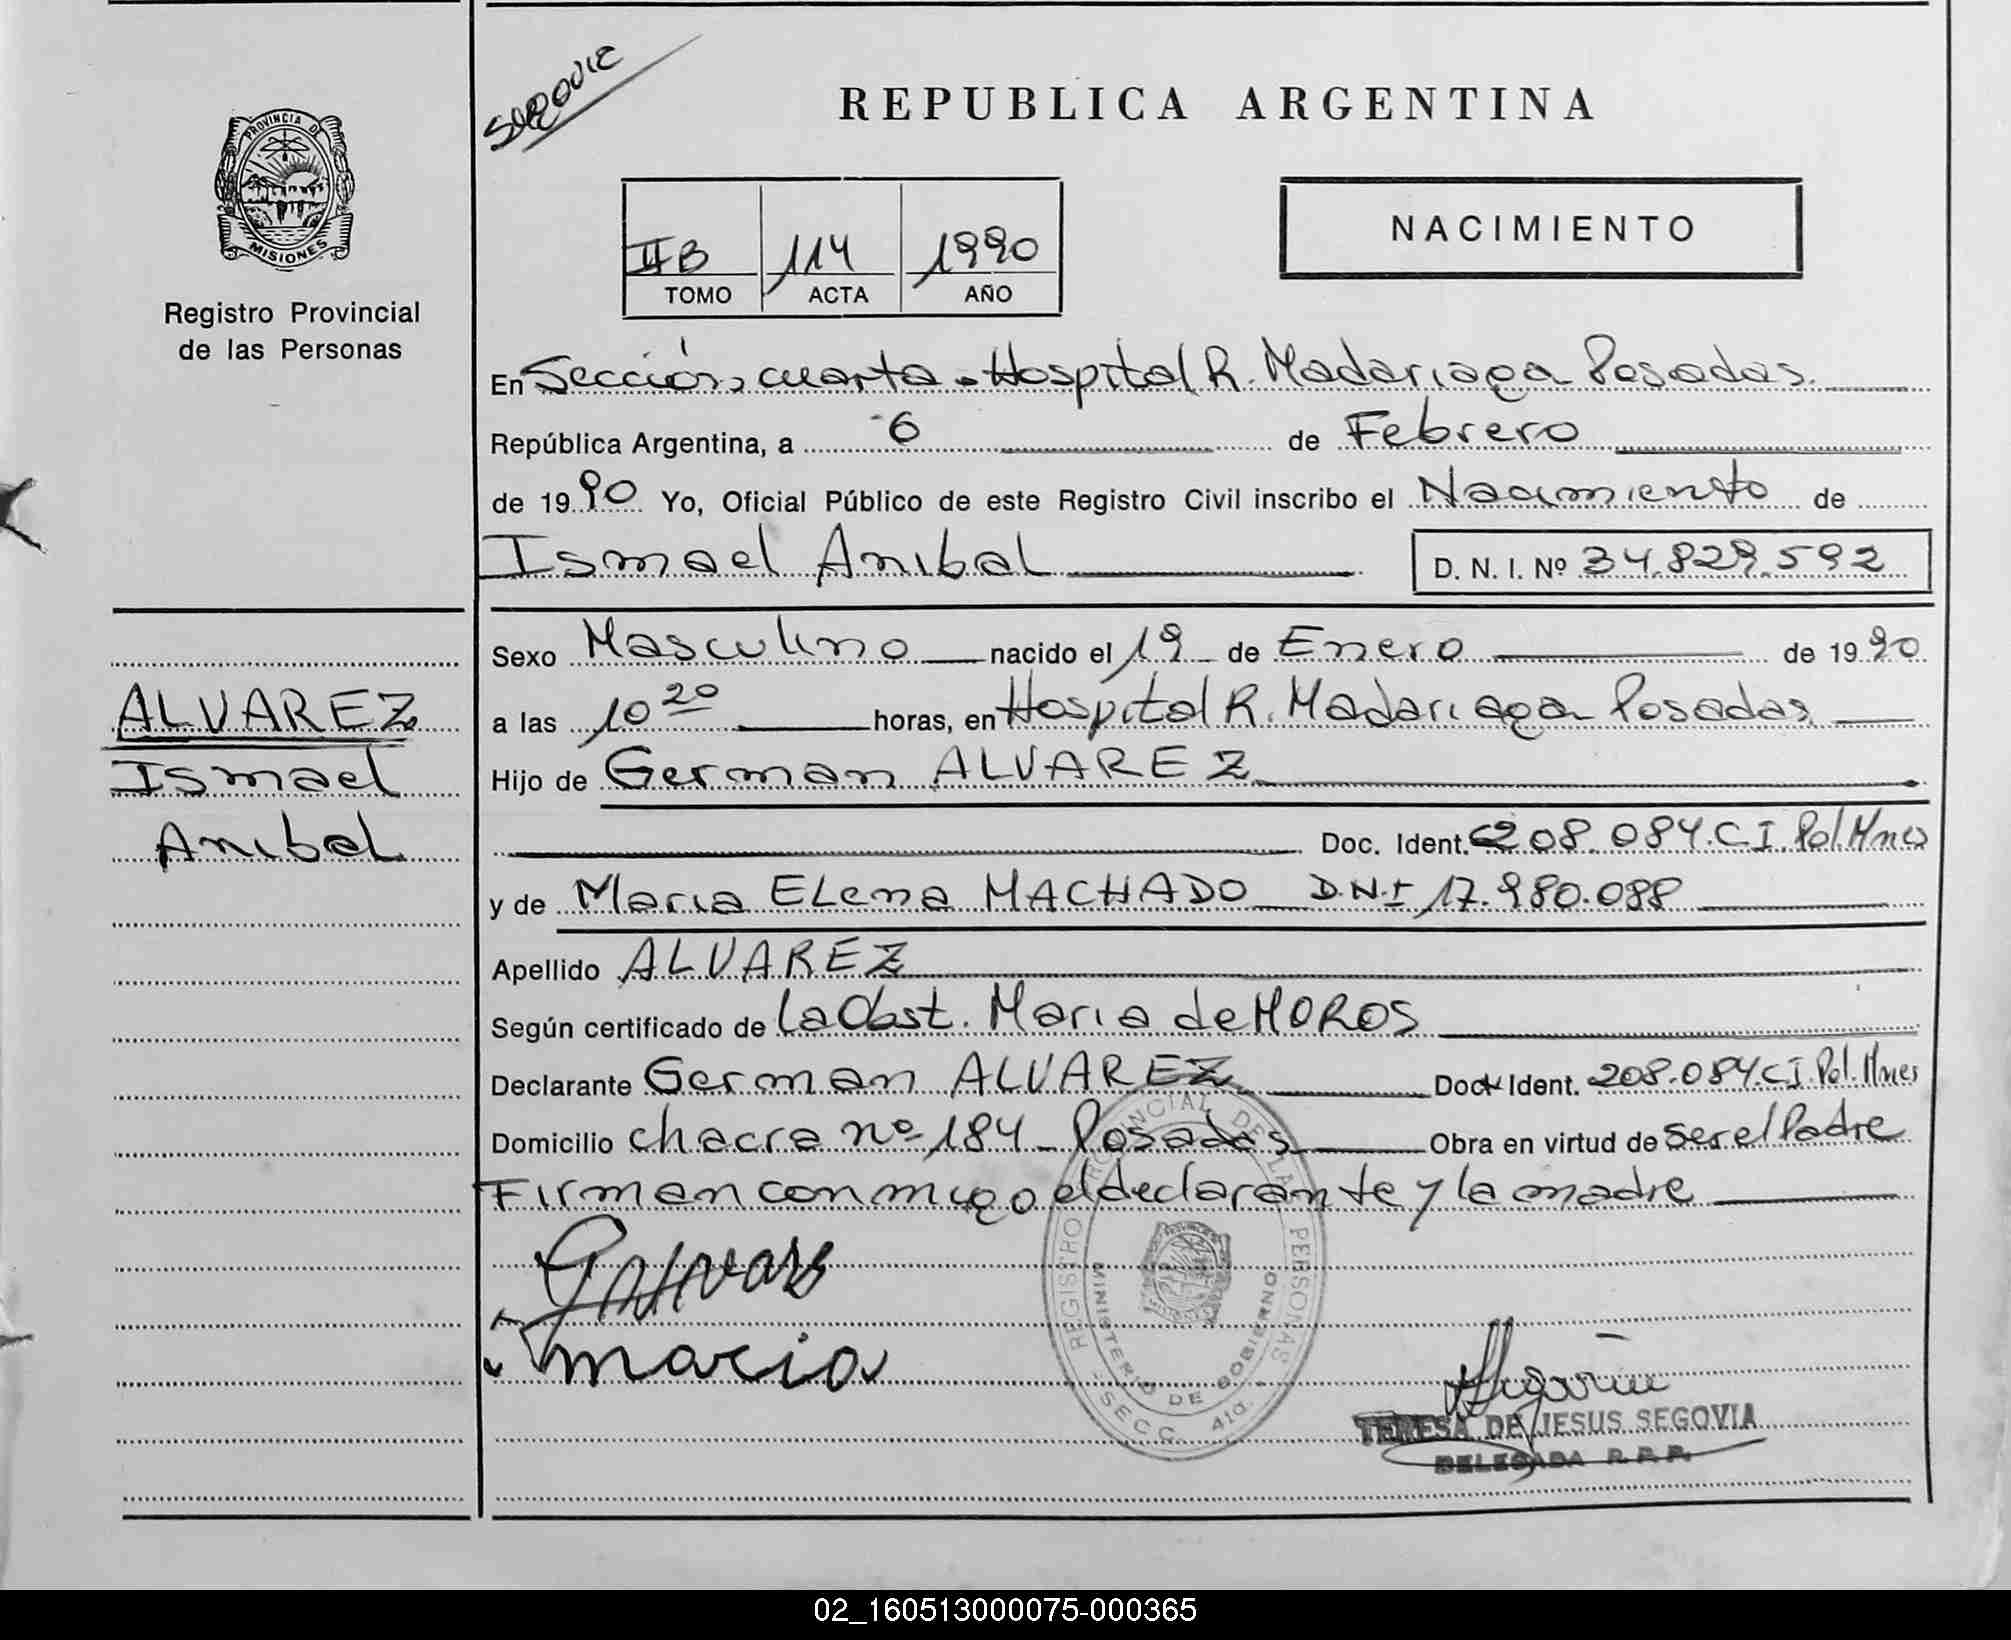 PROVINCIA DE
MISIONES
Registro Provincial
de las Personas
ALVAREZ
Ismael
Anibal
REPUBLICA ARGENTINA
NACIMIENTO
II B 114 1990
TOMO ACTA AÑO
En Sección cuarta - Hospital R. Madariaga Posadas
República Argentina, a 6 de Febrero
de 1990 Yo, Oficial Público de este Registro Civil inscribo el Nacimiento de
Ismael Anibal D. N. I. Nº 34.829.592
Sexo Masculino nacido el 19 de Enero de 1990
a las 10 20 horas, en Hospital R. Madariaga Posadas
Hijo de German ALVAREZ
Doc. Ident. 208.084. C I. Pol. Mnes
y de Maria ELena MACHADO D.N.I 17.980.088
Apellido ALVAREZ
Según certificado de La Obst. Maria de MOROS
Declarante German ALVAREZ Doc. Ident. 208.084. C I. Pol. Mnes
Domicilio chacra nº 184 - Posadas Obra en virtud de ser el Padre
Firman conmigo el declarante y la madre
maria
REGISTRO PROVINCIAL DE LAS PERSONAS
MINISTERIO DE GOBIERNO
SECC. 4ta.
TERESA DE JESUS SEGOVIA
DELEGADA R. P. P.
02_160513000075-000365